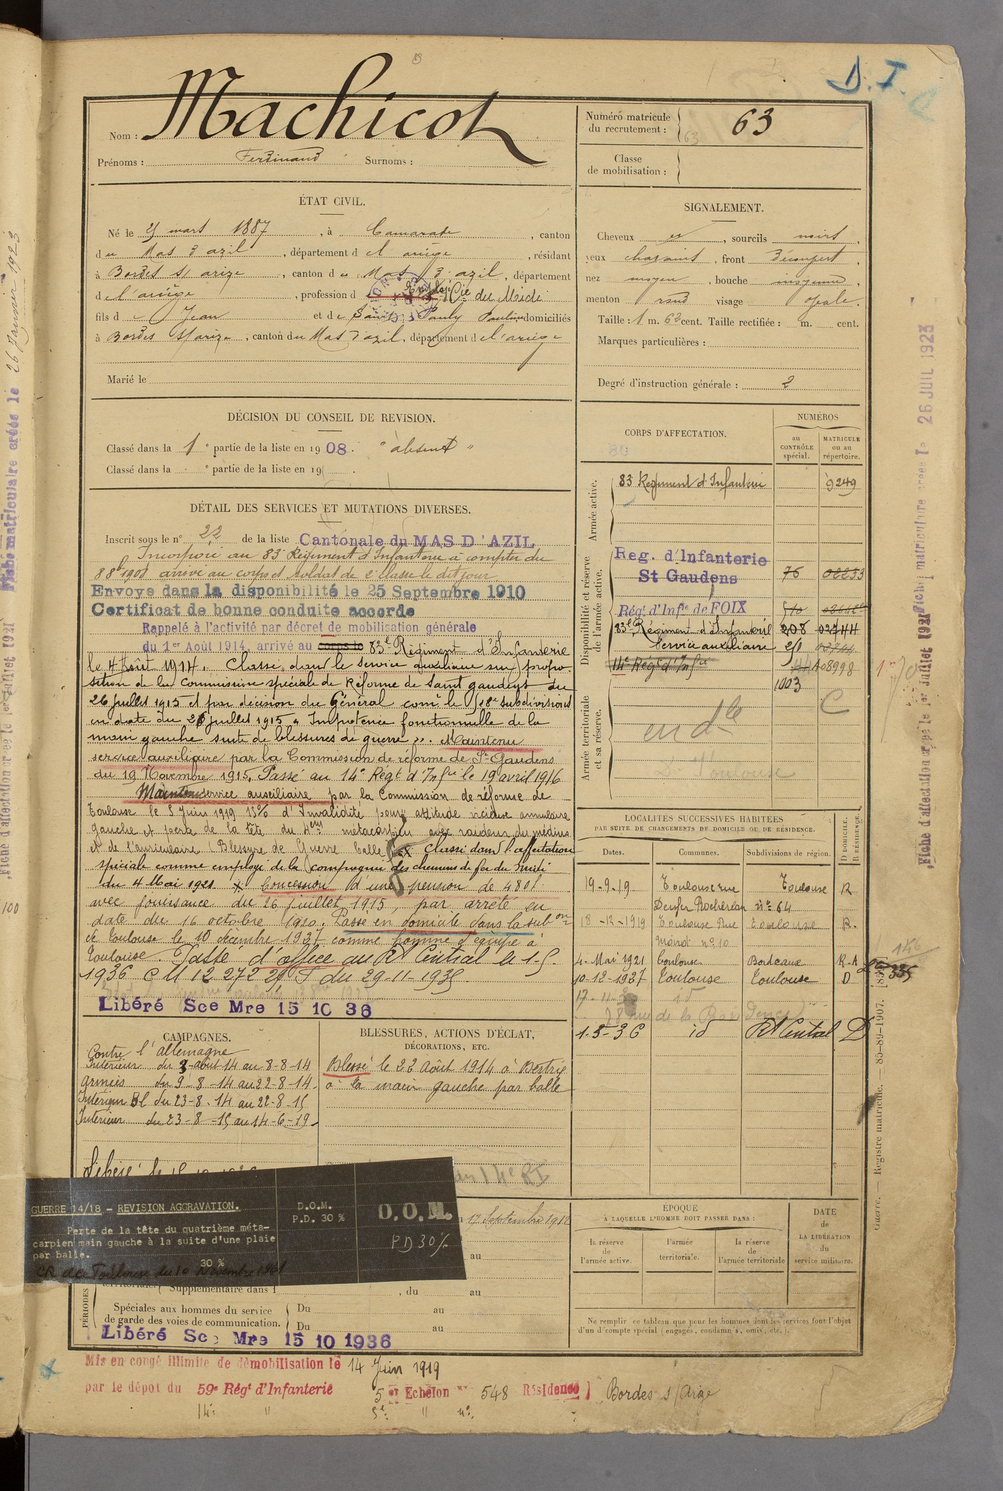 D. I.
Nom : Machicot
Prénoms : Ferdinand Surnoms :
Numéro matricule du recrutement : 63
Classe de mobilisation :
ÉTAT CIVIL.
Né le 25 mars 1887, à Camarade, canton
du Mas d'azil, département d l'ariège, résidant
à Bordes s/ arize, canton du Mas d'azil, département
d l'ariège, profession d Cie du Midi
fils d e Jean et de Pauly Pauline domiciliés
à Bordes S/arize, canton du Mas d'azil, département d el'ariège
Marié le
SIGNALEMENT.
Cheveux , sourcils noirs,
yeux chatains, front découvert,
nez moyen, bouche moyenne,
menton rond visage ovale.
Taille : 1 m. 62 cent. Taille rectifiée : m. cent.
Marques particulières :
Degré d'instruction générale : 2
DÉCISION DU CONSEIL DE REVISION.
Classé dans la 1e partie de la liste en 1908. " absent "
Classé dans la e partie de la liste en 19 .
DÉTAIL DES SERVICES ET MUTATIONS DIVERSES.
Inscrit sous le n° 22 de la liste Cantonale du MAS D'AZIL
Incorporé au 83e Régiment d'Infanterie à compter du
8 8bre 1908 arrivé au corps et soldat de 2e classe le dit jour
Envoyé dans la disponibilité le 25 Septembre 1910
Certificat de bonne conduite accordé
Rappelé à l'activité par décret de mobilisation générale
du 1er Août 1914, arrivé au corps le 83e Régiment d'Infanterie
le 4 Août 1914. Classé dans le service auxiliaire sur propo-
sition de la Commission spéciale de Réforme de Saint gaudens du
26 juillet 1915 et par décision du Général comt la 18e subdivision
en date du 26 juillet 1915 "Impotence fonctionnelle de la
main gauche suite de blessures de guerre". Maintenu
service auxiliaire par la Commission de réforme de St Gaudens
du 19 Novembre 1915. Passé au 14e Régt d'Infie le 19 avril 1916
Maintenu service auxiliaire par la Commission de réforme de
Toulouse le 5 Juin 1919 15% d'Invalidité pour attitude vicieuse annulaire
gauche et perte de la tête du 4eme métacarpien avec raideur du médius
et de l'auriculaire. Blessure de Guerre balle. Classé dans l'affectation
spéciale comme employé de la compagnie des chemins de fer du Midi
du 4 Mai 1921 x Concession d'une pension de 480f
avec jouissance du 26 juillet 1915, par arrêté en
date du 16 octobre 1920. Passé en domicile dans la subon
de Toulouse le 10 décembre 1937 comme homme d'équipe à
Toulouse. Passé d'office au RI Central le 1-5-
1936 CM 12 272 29 S du 29-11-1935
Libéré Sce Mre 15 10 36
CORPS D'AFFECTATION.
NUMÉROS
au CONTRÔLE spécial.
MATRICULE ou au répertoire.
Armée active.
83 Régiment d'Infanterie 9249
Disponibilité et réserve de l'armée active.
Reg. d'Infanterie
St Gaudens 76
Régt d'Infie de FOIX
83e Régiment d'Infanterie 208 02744
Service auxiliaire
14e Régt d'Infie 1003
Armée territoriale et sa réserve.
LOCALITÉS SUCCESSIVES HABITÉES
PAR SUITE DE CHANGEMENTS DE DOMICILE OU DE RÉSIDENCE.
Dates. Communes. Subdivisions de région. D DOMICILE. R RÉSIDENCE.
19-9-19 Toulouse rue Toulouse R
Denfer Rochereau n° 64
18-12-1919 Toulouse Rue Toulouse R.
n° 10
4-Mai 1921 Toulouse Bordeaux R-A
10-12-1937 Toulouse Toulouse D
1-5-36 id RI Central D
CAMPAGNES.
Contre l'allemagne
Intérieur du 3-août 14 au 8-8-14
Armées du 9-8-14 au 22-8-14
Intérieur Bl du 23-8-14 au 22-8-15
Intérieur du 23-8-15 au 14-6-19
BLESSURES, ACTIONS D'ÉCLAT,
DÉCORATIONS, ETC.
Blessé le 22 Août 1914 à Bertrix
à la main gauche par balle
GUERRE 14/18 - REVISION AGGRAVATION.
Perte de la tête du quatrième méta-
carpien main gauche à la suite d'une plaie
par balle.
30 %
CR de Toulouse du 10 Novembre
D.O.M.
P.D. 30 %
D.O.M.
PD 30%
17 Septembre 1912
Supplémentaire dans l , du au
Spéciales aux hommes du service de garde des voies de communication. Du au
Du au
Libéré Sce Mre 15 10 1936
ÉPOQUE
À LAQUELLE L'HOMME DOIT PASSER DANS :
la réserve de l'armée active. l'armée territoriale. la réserve de l'armée territoriale
DATE de LA LIBÉRATION du service militaire.
Ne remplir ce tableau que pour les hommes dont les services font l'objet
d'un compte spécial (engagés, condamnés, omis, etc.).
Mis en congé illimité de démobilisation le 14 Juin 1919
par le dépôt du 59e Régt d'Infanterie 5e Echelon n° 548 Résidence Bordes s/Arize
Fiche matriculaire créée le 26 Janvier 1923
Fiche d'affectation créée le 1er Juillet 1921
100
Fiche matriculaire créée le 26 JUIL 1923
Fiche d'affectation créée le 1er Juillet 1921
Guerre. — Registre matricule. — 85-89-1907.